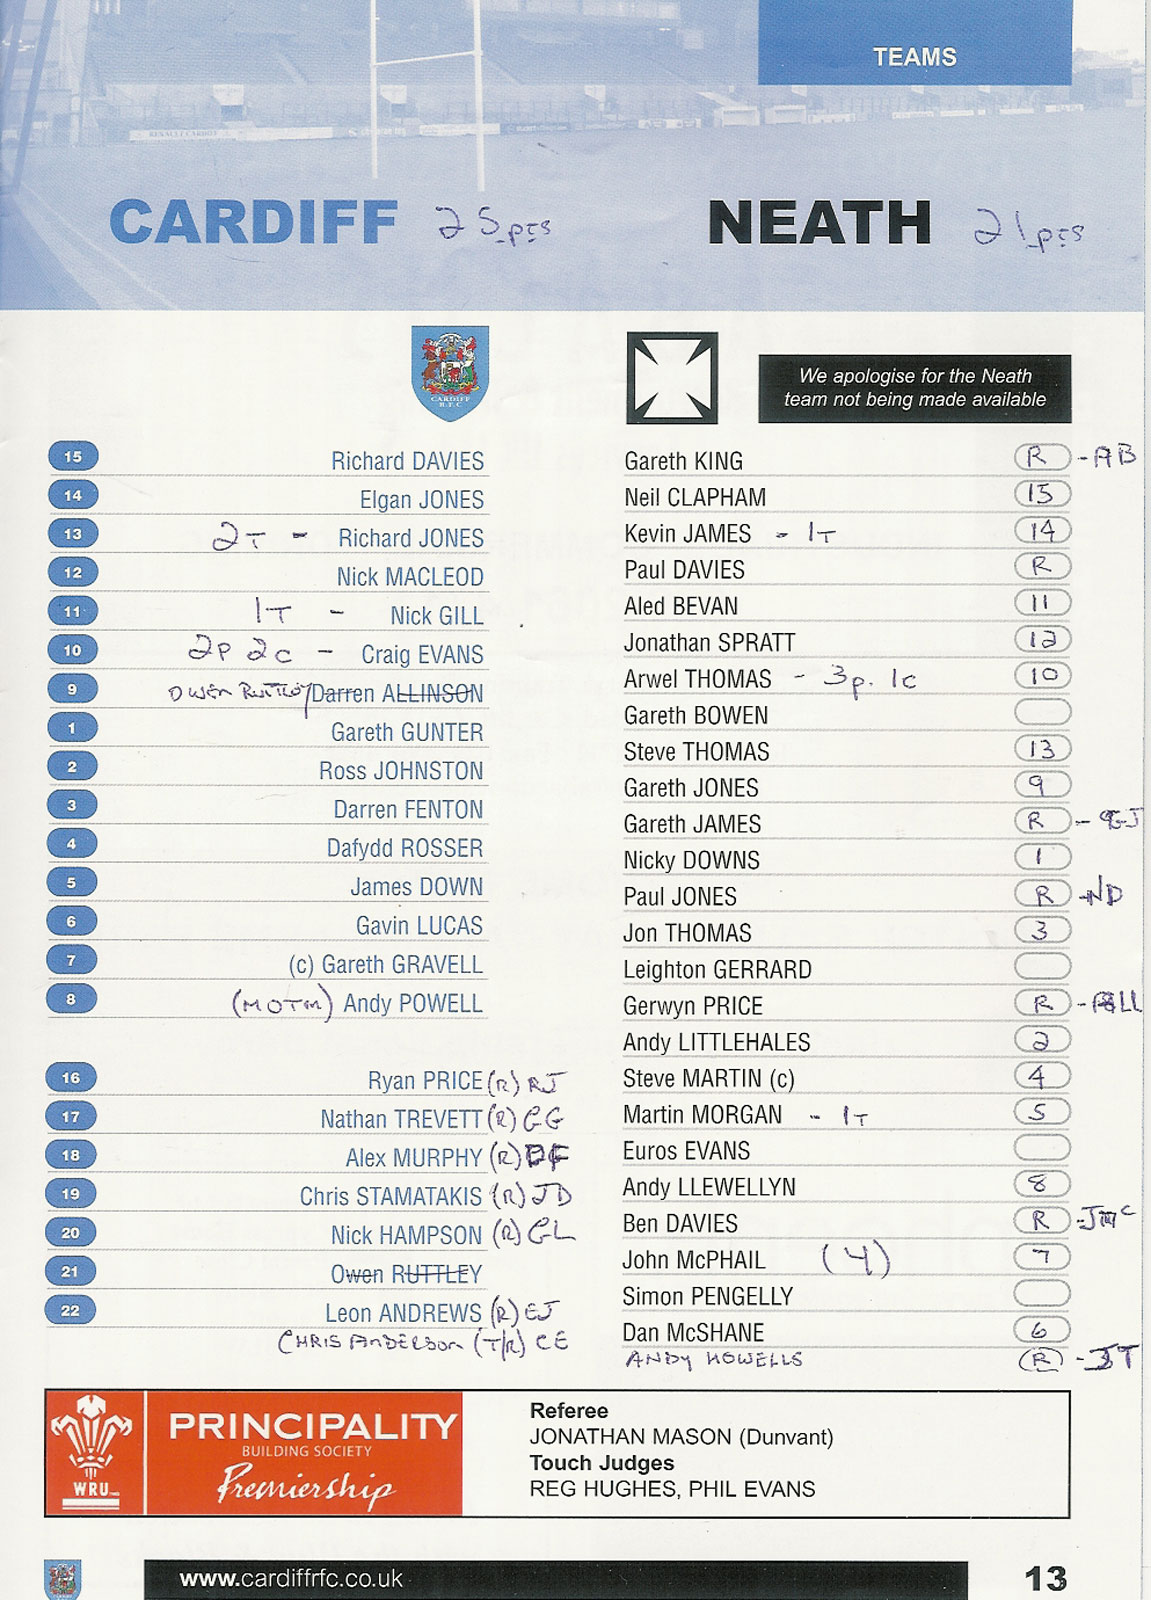 TEAMS
CARDIFF 25 pts
NEATH 21 pts
We apologise for the Neath
team not being made available
15 Richard DAVIES
14 Elgan JONES
13 2T - Richard JONES
12 Nick MACLEOD
11 1T - Nick GILL
10 2P 2C - Craig EVANS
9 OWEN RUTTLEY/Darren ALLINSON
1 Gareth GUNTER
2 Ross JOHNSTON
3 Darren FENTON
4 Dafydd ROSSER
5 James DOWN
6 Gavin LUCAS
7 (c) Gareth GRAVELL
8 (MOTM) Andy POWELL
16 Ryan PRICE (R) RJ
17 Nathan TREVETT (R) GG
18 Alex MURPHY (R) DF
19 Chris STAMATAKIS (R) JD
20 Nick HAMPSON (R) GL
21 Owen RUTTLEY
22 Leon ANDREWS (R) EJ
CHRIS ANDERSON (T/R) CE
Gareth KING R - AB
Neil CLAPHAM 15
Kevin JAMES - 1T 14
Paul DAVIES R
Aled BEVAN 11
Jonathan SPRATT 12
Arwel THOMAS - 3p. 1c 10
Gareth BOWEN
Steve THOMAS 13
Gareth JONES 9
Gareth JAMES R - GJ
Nicky DOWNS 1
Paul JONES R - ND
Jon THOMAS 3
Leighton GERRARD
Gerwyn PRICE R - ALL
Andy LITTLEHALES 2
Steve MARTIN (c) 4
Martin MORGAN - 1T 5
Euros EVANS
Andy LLEWELLYN 8
Ben DAVIES R - JMC
John McPHAIL (4) 7
Simon PENGELLY
Dan McSHANE 6
ANDY HOWELLS (R) - JT
WRU
PRINCIPALITY
BUILDING SOCIETY
Premiership
Referee
JONATHAN MASON (Dunvant)
Touch Judges
REG HUGHES, PHIL EVANS
www.cardiffrfc.co.uk
13